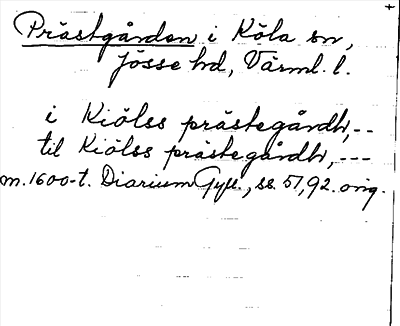 Prästgården i Köla sn,
Jösse hd, Värml. l.
i Kiölss prästegårdh, --
til Kiölss prästegårdh, ---
m. 1600-t. Diarium Gyll., ss. 57, 92. orig.